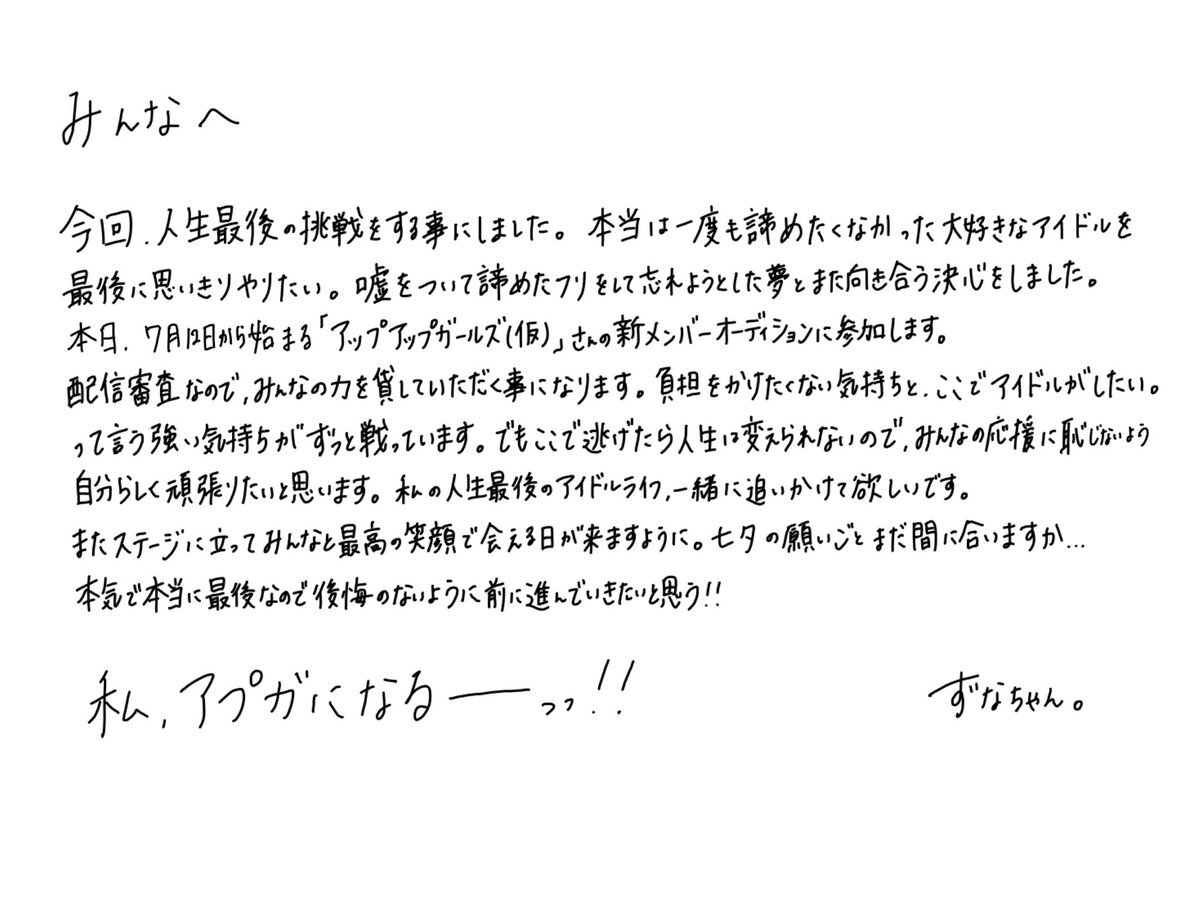 みんなへ
今回、人生最後の挑戦をする事にしました。本当は一度も諦めたくなかった大好きなアイドルを
最後に思いきりやりたい。嘘をついて諦めたフリをして忘れようとした夢とまた向き合う決心をしました。
本日、7月12日から始まる「アップアップガールズ(仮)」さんの新メンバーオーディションに参加します。
配信審査なので、みんなの力を貸していただく事になります。負担をかけたくない気持ちと、ここでアイドルがしたい。
って言う強い気持ちがずっと戦っています。でもここで逃げたら人生は変えられないので、みんなの応援に恥じないよう
自分らしく頑張りたいと思います。私の人生最後のアイドルライフ、一緒に追いかけて欲しいです。
またステージに立ってみんなと最高の笑顔で会える日が来ますように。七夕の願いごとまだ間に合いますか...
本気で本当に最後なので後悔のないように前に進んでいきたいと思う!!
私、アプガになるーっっ!!
ずなちゃん。